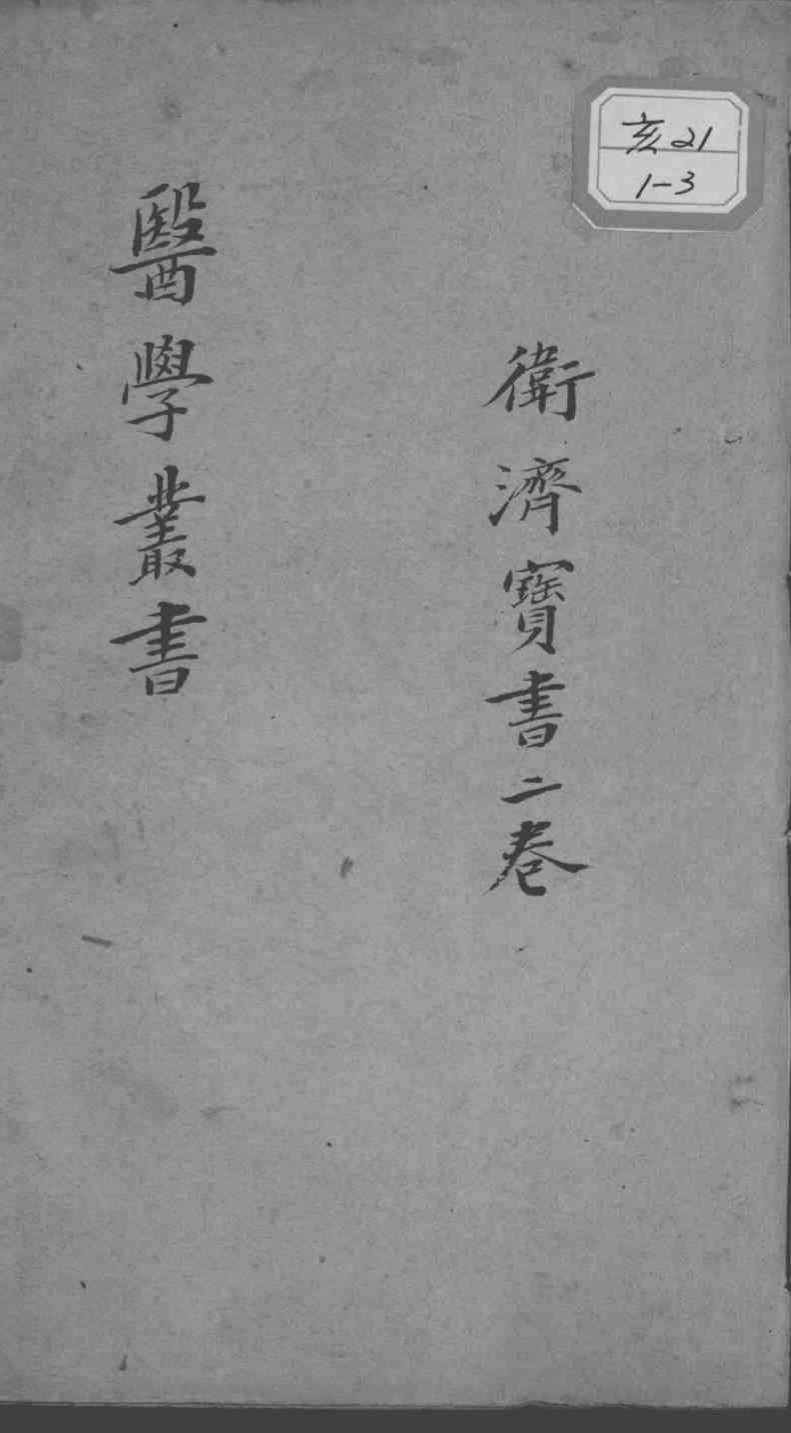 亥21
1-3
衛濟寶書二卷
醫學叢書